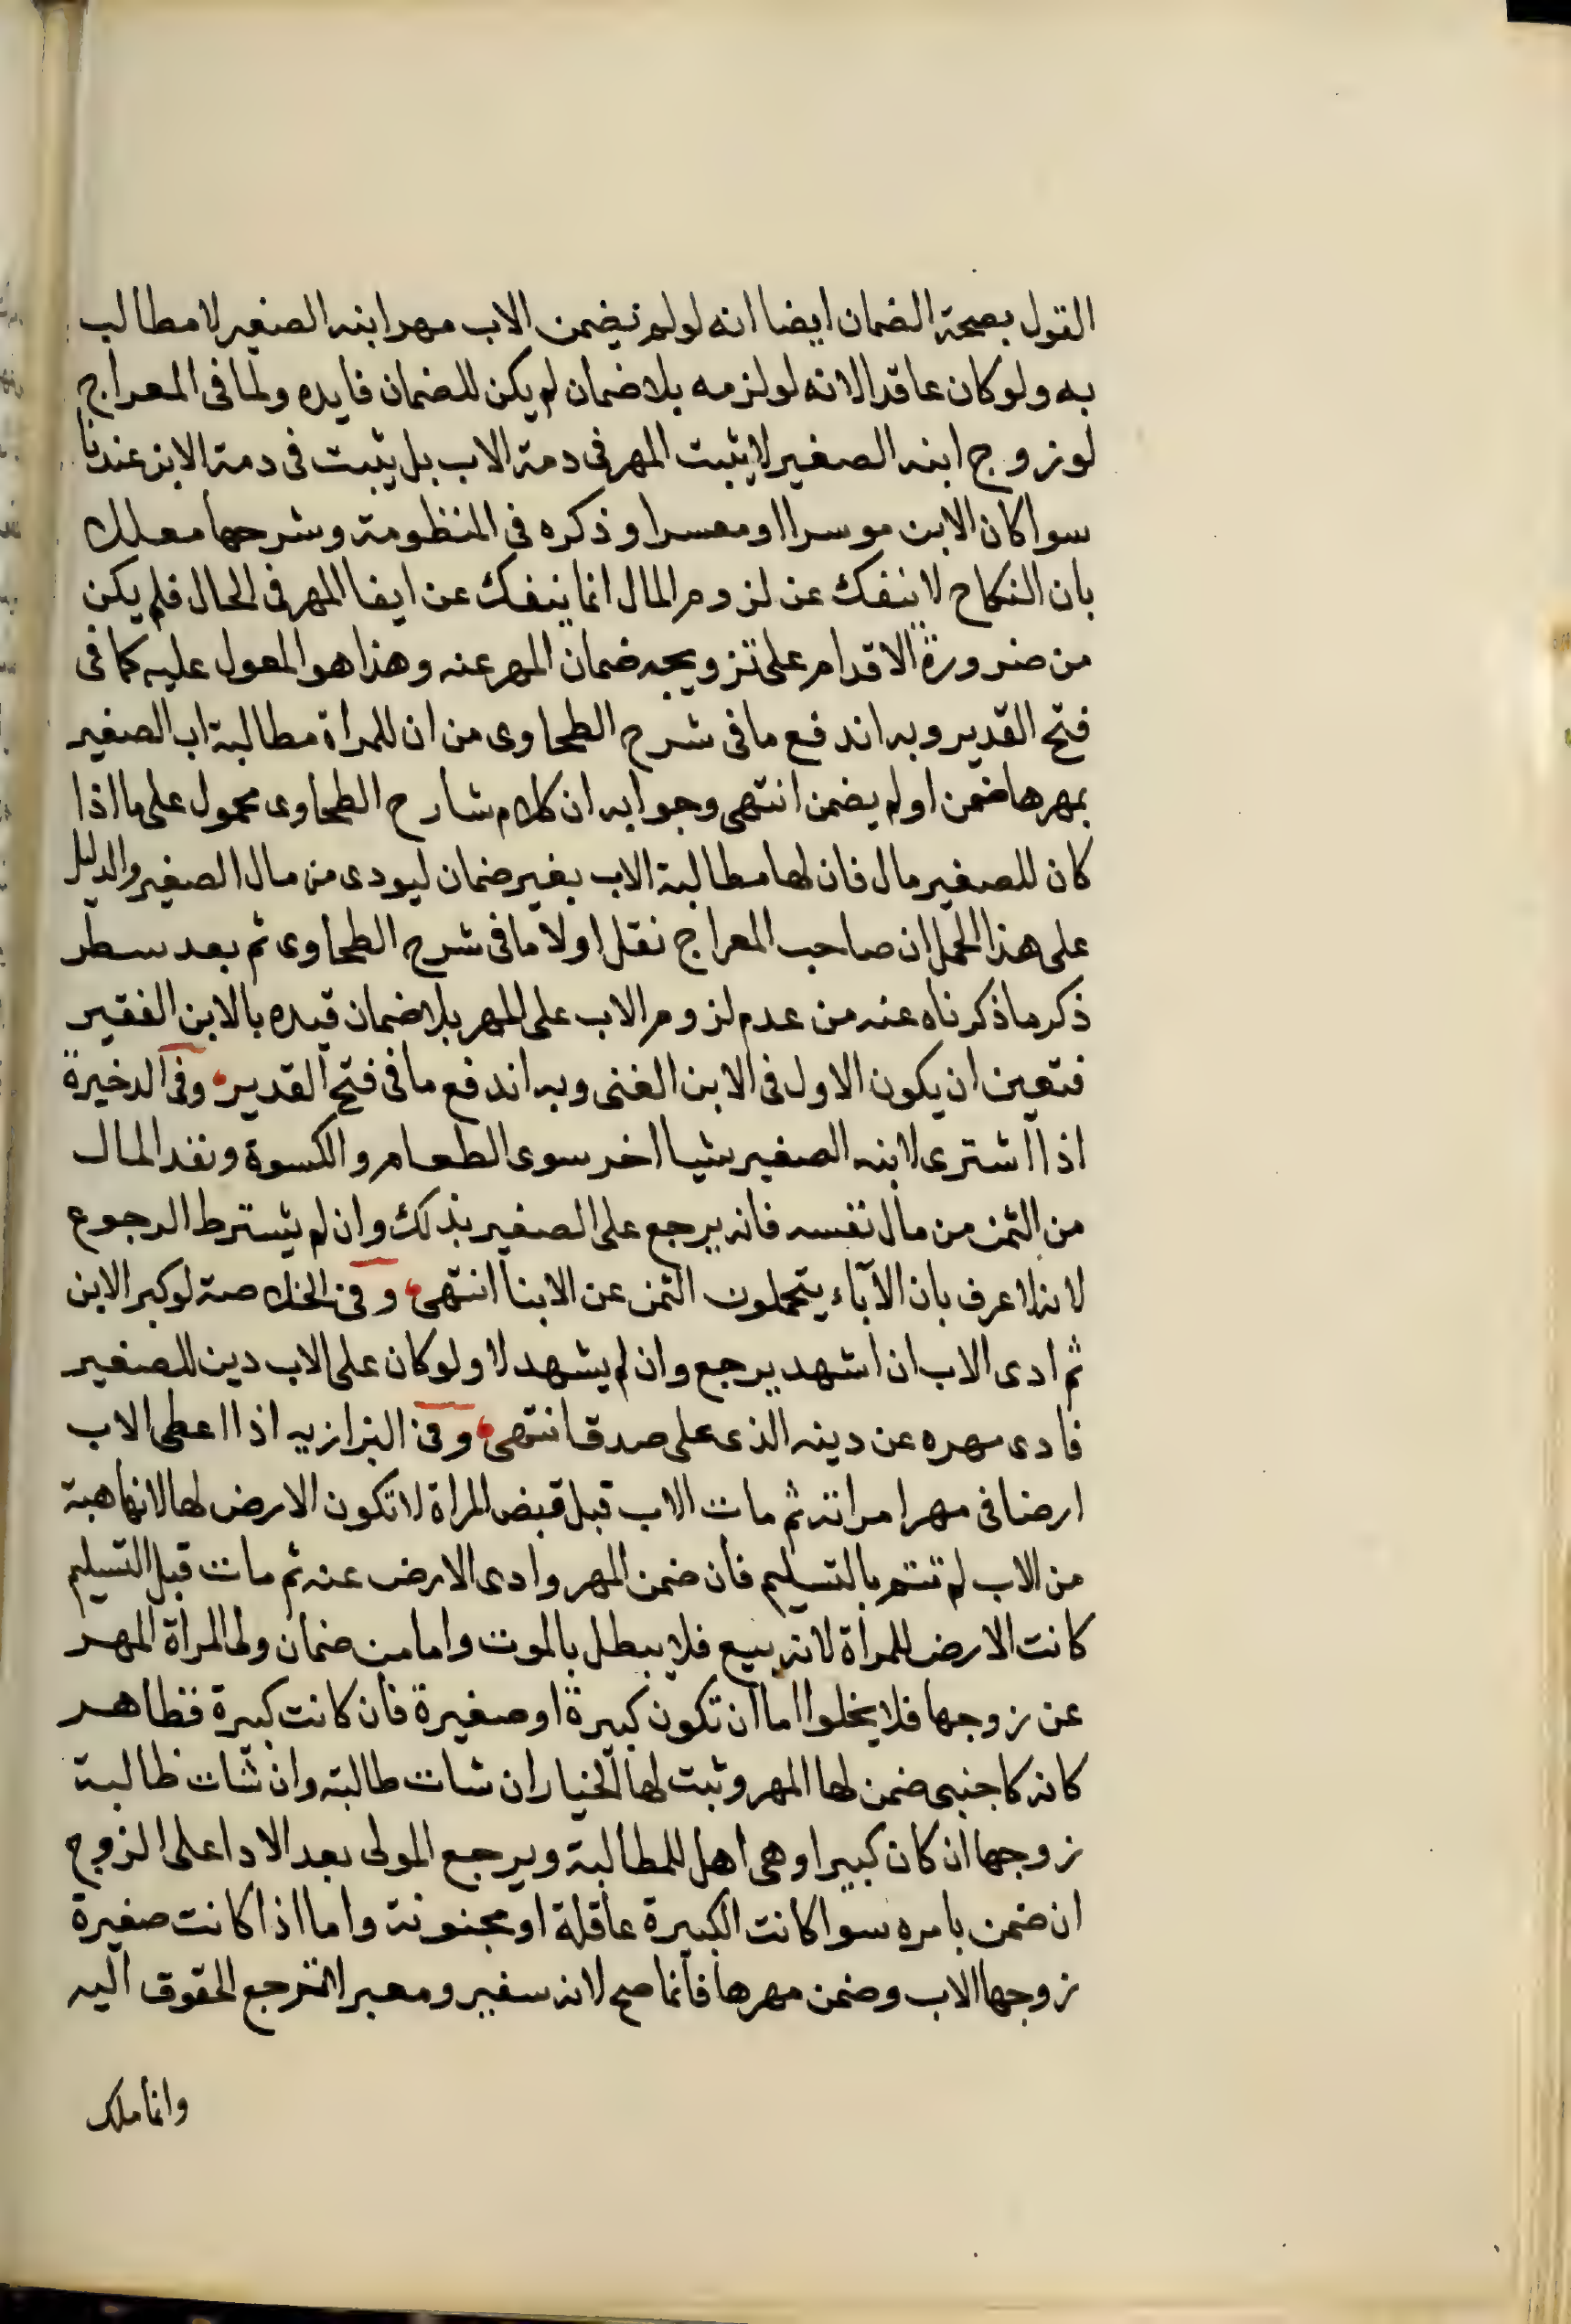 القول بصحة الضمان ايضا انه لو لم يضمن الاب مهر ابنه الصغير لا مطالب
به ولو كان عاقدا لانه لو لزمه بلا ضمان لم يكن للضمان فايده ولما فى المعراج
لو زوج ابنه الصغير لا يثبت المهر فى دمة الاب بل يثبت فى دمة الابن عندنا
سوا كان الابن موسرا او معسرا وذكره فى المنظومة وشرحها معللا
بان النكاح لا ينفك عن لزوم المال انما ينفك عن ايفا المهر فى الحال فلم يكن
من ضرورة الاقدام على تزويجه ضمان المهر عنه وهذا هو المعول عليه كما فى
فتح القدير وبه اندفع ما فى شرح الطحاوى من ان للمراة مطالبة اب الصغير
بمهرها ضمن او لم يضمن انتهى وجوابه ان كلام شارح الطحاوى محمول على ما اذا
كان للصغير مال فان لها مطالبة الاب بغير ضمان ليودى من مال الصغير والدليل
على هذا الحمل ان صاحب المعراج نقل اولا ما فى شرح الطحاوى ثم بعد سطر
ذكر ما ذكرناه عنه من عدم لزوم الاب على المهر بلا ضمان قيده بالابن الفقير
فتعين ان يكون الاول فى الابن الغنى وبه اندفع ما فى فتح القدير وفى الدخيرة
اذا اشترى لابنه الصغير شيا اخر سوى الطعام والكسوة ونقد المال
من الثمن من مال نفسه فانه يرجع على الصغير بذلك وان لم يشترط الرجوع
لانه لا عرف بان الآباء يتحملون الثمن عن الابنا انتهى وفى الخلاصة لو كبر الابن
ثم ادى الاب ان اشهد يرجع وان لم يشهد لا ولو كان على الاب دين للصغير
فادى مهره عن دينه الذى على صدق انتهى وفى البزازيه اذا اعطى الاب
ارضا فى مهر امراته ثم مات الاب قبل قبض المراة لا تكون الارض لها لانها هبة
من الاب لم تتم بالتسليم فان ضمن المهر وادى الارض عنه ثم مات قبل التسليم
كانت الارض للمراة لانه بيع فلا يبطل بالموت واما من ضمان ولى المراة المهر
عن زوجها فلا يخلوا اما ان تكون كبيرة او صغيرة فان كانت كبيرة فظاهر
كانه كاجنبى ضمن لها المهر وثبت لها الخيار ان شات طالبته وان شات طالبة
زوجها ان كان كبيرا وهى اهل للمطالبة ويرجع المولى بعد الادا على الزوج
ان ضمن بامره سوا كانت الكبيرة عاقلة او مجنونة واما اذا كانت صغيرة
زوجها الاب وضمن مهرها فانما صح لانه سفير ومعبر لا ترجع الحقوق اليه
وانما ملك